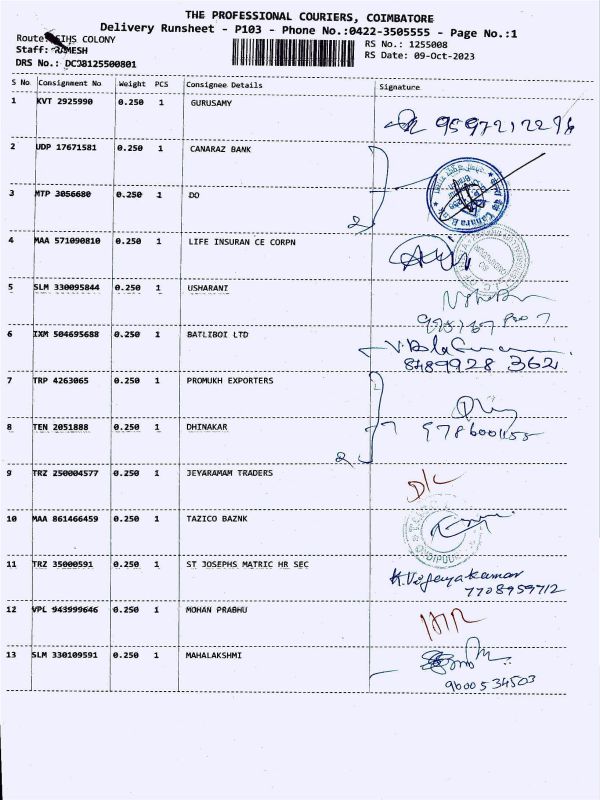 THE PROFESSIONAL COURIERS, COIMBATORE
Delivery Runsheet - P103 - Phone No.:0422-3505555 - Page No.:1
Route: SIHS COLONY
RS No.: 1255008
Staff: RAMESH
RS Date: 09-Oct-2023
DRS No.: DCJ8125500801
S No Consignment No Weight PCS Consignee Details Signature
1 KVT 2925990 0.250 1 GURUSAMY
2 UDP 17671581 0.250 1 CANARAZ BANK
3 MTP 3056680 0.250 1 DO
2
4 MAA 571090810 0.250 1 LIFE INSURAN CE CORPN
5 SLM 330095844 0.250 1 USHARANI
6 IXM 504695688 0.250 1 BATLIBOI LTD
8489928 362
7 TRP 4263065 0.250 1 PROMUKH EXPORTERS
8 TEN 2051888 0.250 1 DHINAKAR
2
9 TRZ 250004577 0.250 1 JEYARAMAM TRADERS D/L
10 MAA 861466459 0.250 1 TAZICO BAZNK
11 TRZ 35000591 0.250 1 ST JOSEPHS MATRIC HR SEC
K.Vijeyakumar
7708959712
12 VPL 943999646 0.250 1 MOHAN PRABHU
13 SLM 330109591 0.250 1 MAHALAKSHMI
9600534503